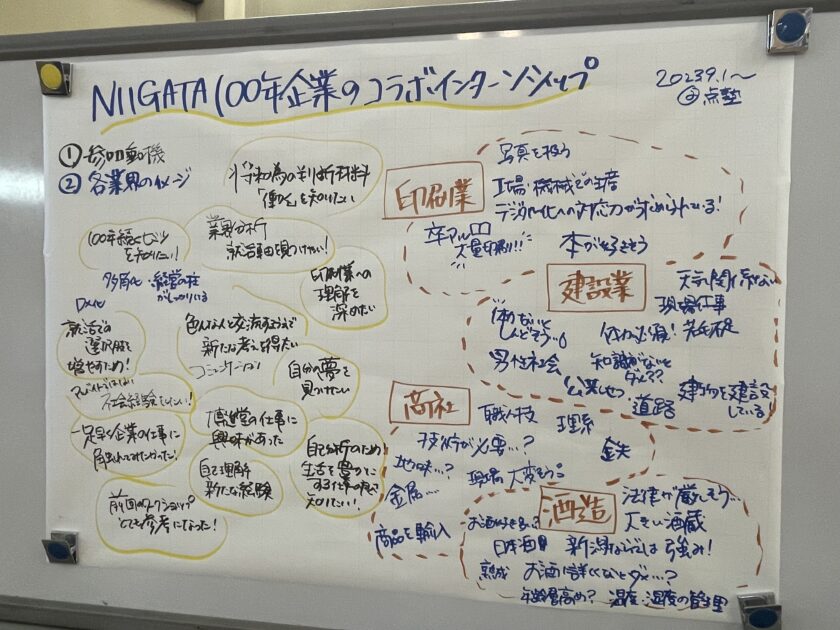 NIIGATA 100年企業のコラボインターンシップ
2023.9.1～
@点塾
① 参加動機
② 各業界のイメージ
将来の為の判断材料
「働く」を知りたい
100年続くヒミツ
を知りたい!
業界分析
就活軸を見つけたい!
多角化・経営の柱
がしっかりしている
印刷業への
理解を
深めたい
就活での
選択肢を
増やすため!
色んな人と交流することで
新たな考えを得たい
コミュニケーション
自分の夢を
見つけたい
アルバイトではない
社会経験をしたい!
一足早く企業の仕事に
触れてみたかった!
博進堂の仕事に
興味があった
自己理解
新たな経験
自己分析のため
生活を豊かに
する仕事を
知りたい!
前回のワークショップ
とても参考になった!
印刷業
写真を扱う
工場・機械での生産
デジタル化への対応力が求められている!
卒アル
大量印刷!!
本がすきそう
建設業
天気に関係ない
現場仕事
体力ないと
しんどそう
体力必須!
若手不足
男性社会
知識がないと
ダメ??
公共しせつ
道路
建物を建設
している
商社
職人技
理系
技術が必要…?
鉄
地味…?
現場大変そう。
金属…
商品を輸入
酒造
法律が厳しそう…
大きい酒蔵
お酒好き多い?
日本酒
新潟ならではの強み!
熟成
お酒に詳しくないとダメ…?
年齢層高め?
温度・湿度の管理